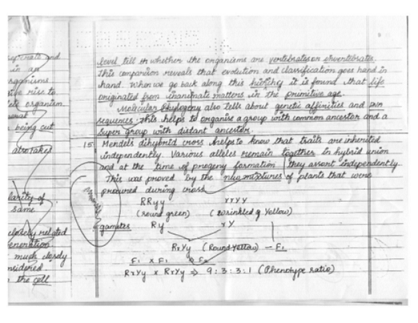 level till or whether the organisms are vertebrates or invertebrates
This comparison reveals that evolution and classification goes hand in
hand. When we go back along this history it is found that life
originated from inanimate matters in the primitive age.
Molecular phylogeny also tells about genetic affinities and
sequences, this helps to organise a group with common ancestor and a
super group with distant ancestor.
15. Mendel's dihybrid cross helps to know that traits are inherited
independently. Various alleles remain together in hybrid union
and at the time of progeny formation they assort independently
This was proved by the new mixtures of plants that were
produced during cross
RRyy rrYY
(round green) (wrinkled Yellow)
gametes Ry rY
RrYy (Round Yellow) — F1
F1 x F1
RrYy x RrYy ⇒ 9:3:3:1 (Phenotype ratio)
and
organisms
life rise to
organism.
being out
also takes
same
closely related
generation
much closely
considered
the cell